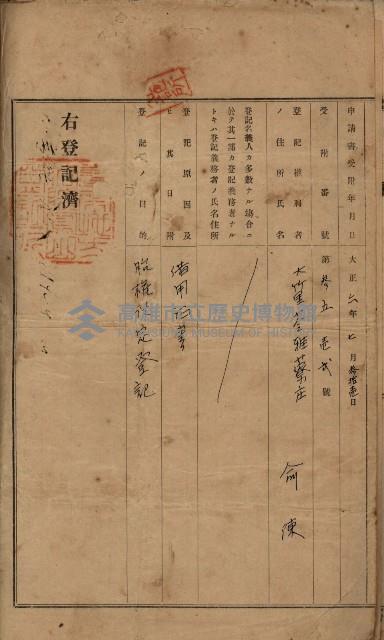 申請書受附年月日 大正六年七月参拾壱日
受附番號 第参五壱弐號
登記權利者ノ住所氏名 大竹里 雅藔庄 俞陳
登記名義人カ多數ナル場合ニ
於テ其一部カ登記義務者ナル
トキハ登記義務者ノ氏名住所
登記原因及ヒ其日附 借用証書
登記ノ目的 胎權設定登記
右登記濟
高雄市立歷史博物館
KAOHSIUNG MUSEUM OF HISTORY